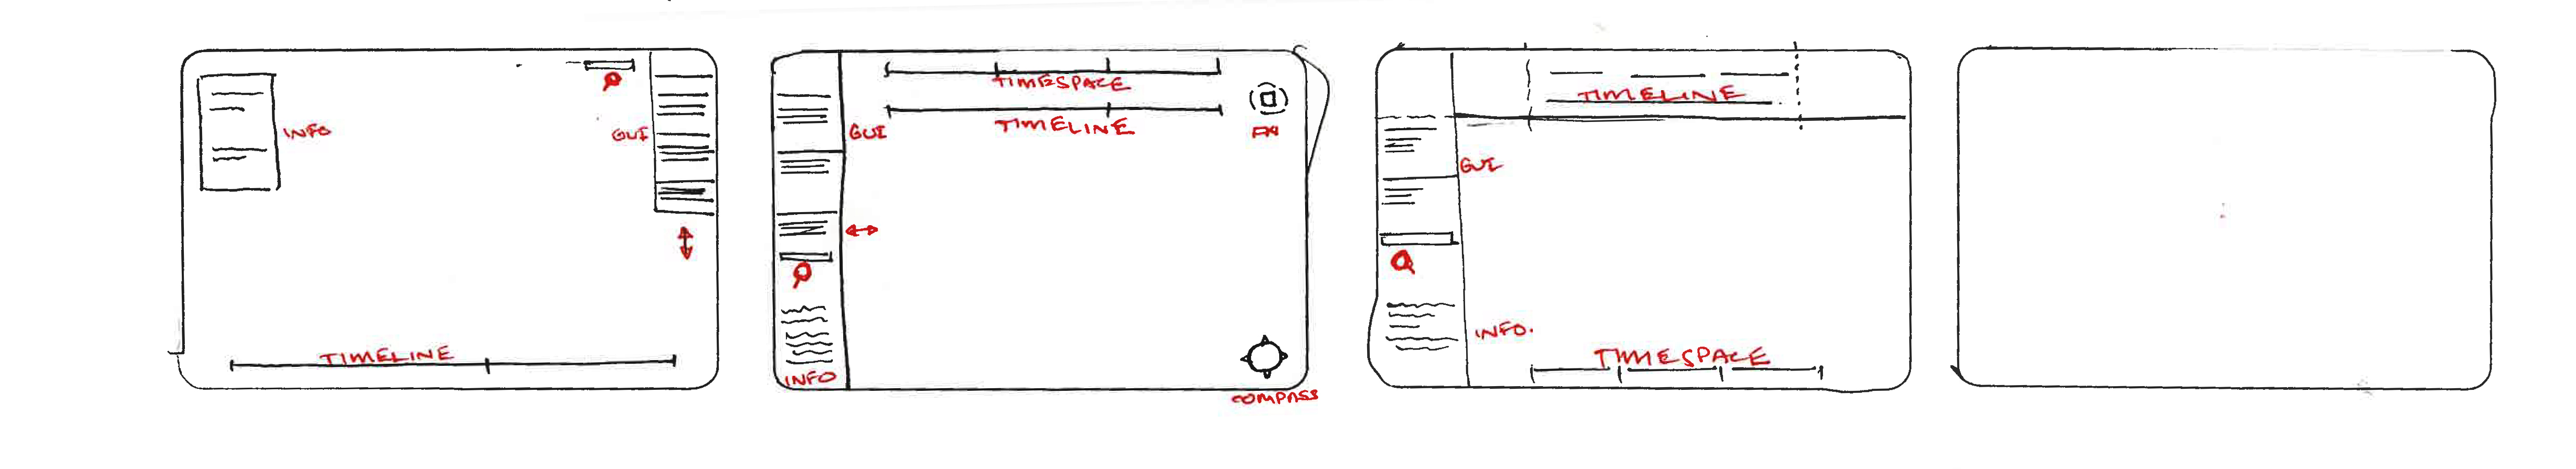 INFO
GUI
TIMELINE
TIMESPACE
TIMELINE
GUI
INFO
COMPASS
TIMELINE
GUI
INFO.
TIMESPACE